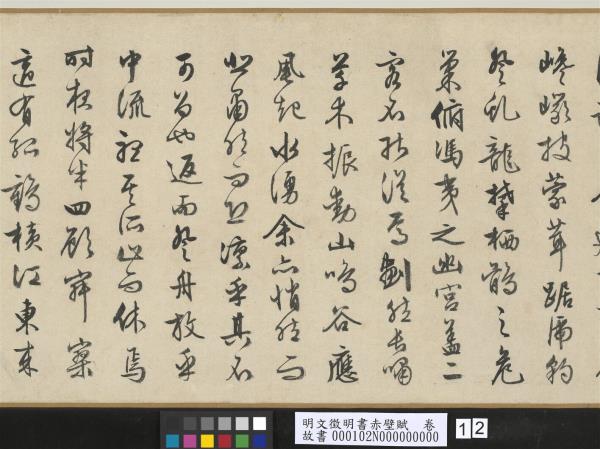 巉巖披蒙茸踞虎豹
登虬龍攀栖鶻之危
巢俯馮夷之幽宮蓋二
客不能從焉劃然長嘯
草木振動山鳴谷應
風起水湧余亦悄然而
悲肅然而恐凜乎其不
可留也返而登舟放乎
中流聽其所止而休焉
時夜將半四顧寂寥
適有孤鶴橫江東來
明文徵明書赤壁賦 卷
故書 000102N000000000
12